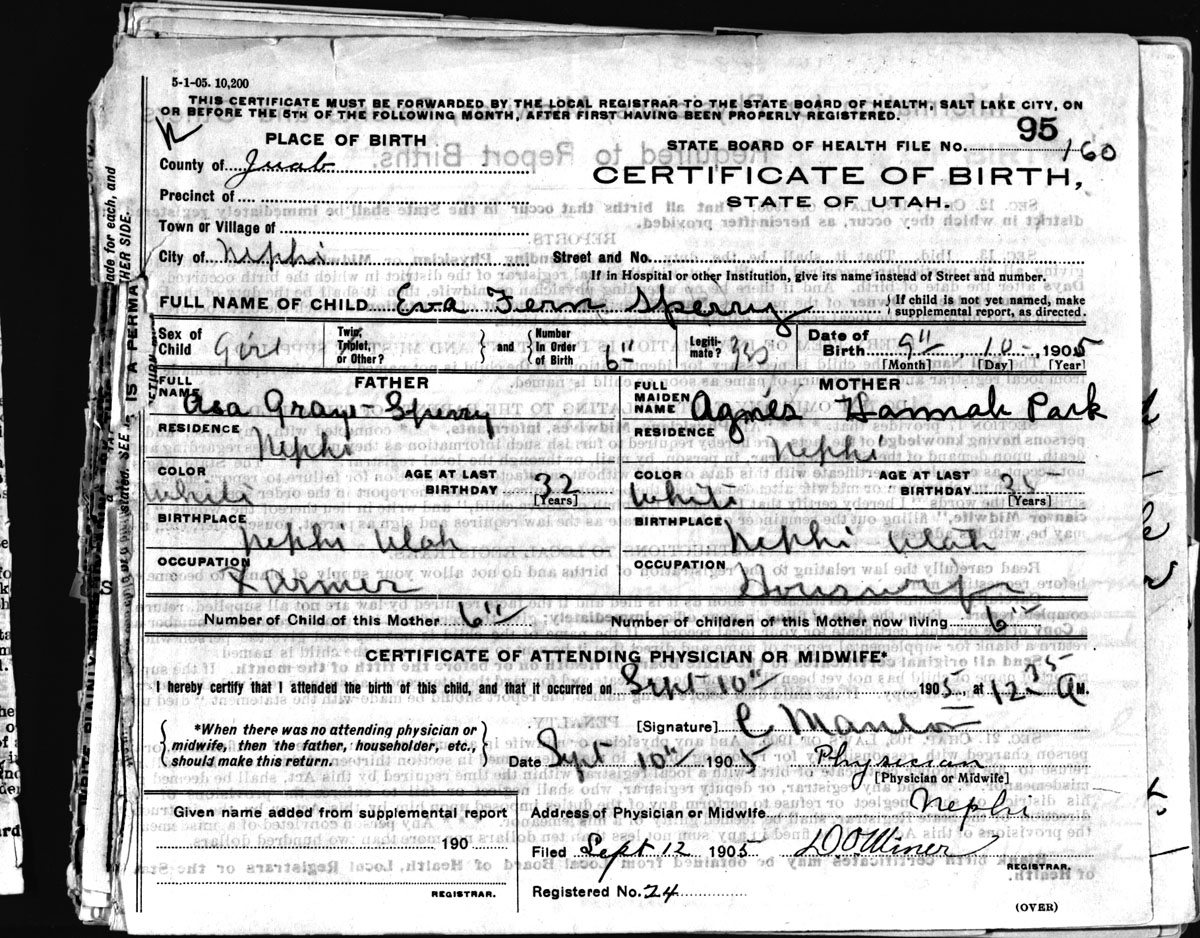 5-1-05. 10,200
THIS CERTIFICATE MUST BE FORWARDED BY THE LOCAL REGISTRAR TO THE STATE BOARD OF HEALTH, SALT LAKE CITY, ON
OR BEFORE THE 5TH OF THE FOLLOWING MONTH, AFTER FIRST HAVING BEEN PROPERLY REGISTERED.
PLACE OF BIRTH
95
STATE BOARD OF HEALTH FILE NO. 160
County of Juab
CERTIFICATE OF BIRTH,
STATE OF UTAH.
Precinct of
Town or Village of
City of Nephi Street and No.
If in Hospital or other Institution, give its name instead of Street and number.
FULL NAME OF CHILD Eva Fern Sperry } If child is not yet named, make supplemental report, as directed.
Sex of Child Girl Twin, Triplet, or Other? } and { Number in Order of Birth 6" Legitimate? yes Date of Birth 9", 10-, 1905
[Month] [Day] [Year]
FATHER
FULL NAME Asa Sperry
RESIDENCE Nephi
COLOR White AGE AT LAST BIRTHDAY 32 [Years]
BIRTHPLACE Nephi Utah
OCCUPATION Farmer
MOTHER
FULL MAIDEN NAME Agnes Hannah Park
RESIDENCE Nephi
COLOR White AGE AT LAST BIRTHDAY [Years]
BIRTHPLACE Nephi Utah
OCCUPATION Housewife
Number of Child of this Mother 6" Number of children of this Mother now living 6"
CERTIFICATE OF ATTENDING PHYSICIAN OR MIDWIFE*
I hereby certify that I attended the birth of this child, and that it occurred on Sept 10" 1905, at 12 35 A M.
[Signature] C
*When there was no attending physician or
midwife, then the father, householder, etc.,
should make this return.
Date Sept 10" 1905 Physician
[Physician or Midwife]
Given name added from supplemental report
190
REGISTRAR.
Address of Physician or Midwife Nephi
Filed Sept 12 1905 Miner
REGISTRAR.
Registered No. 24
(OVER)